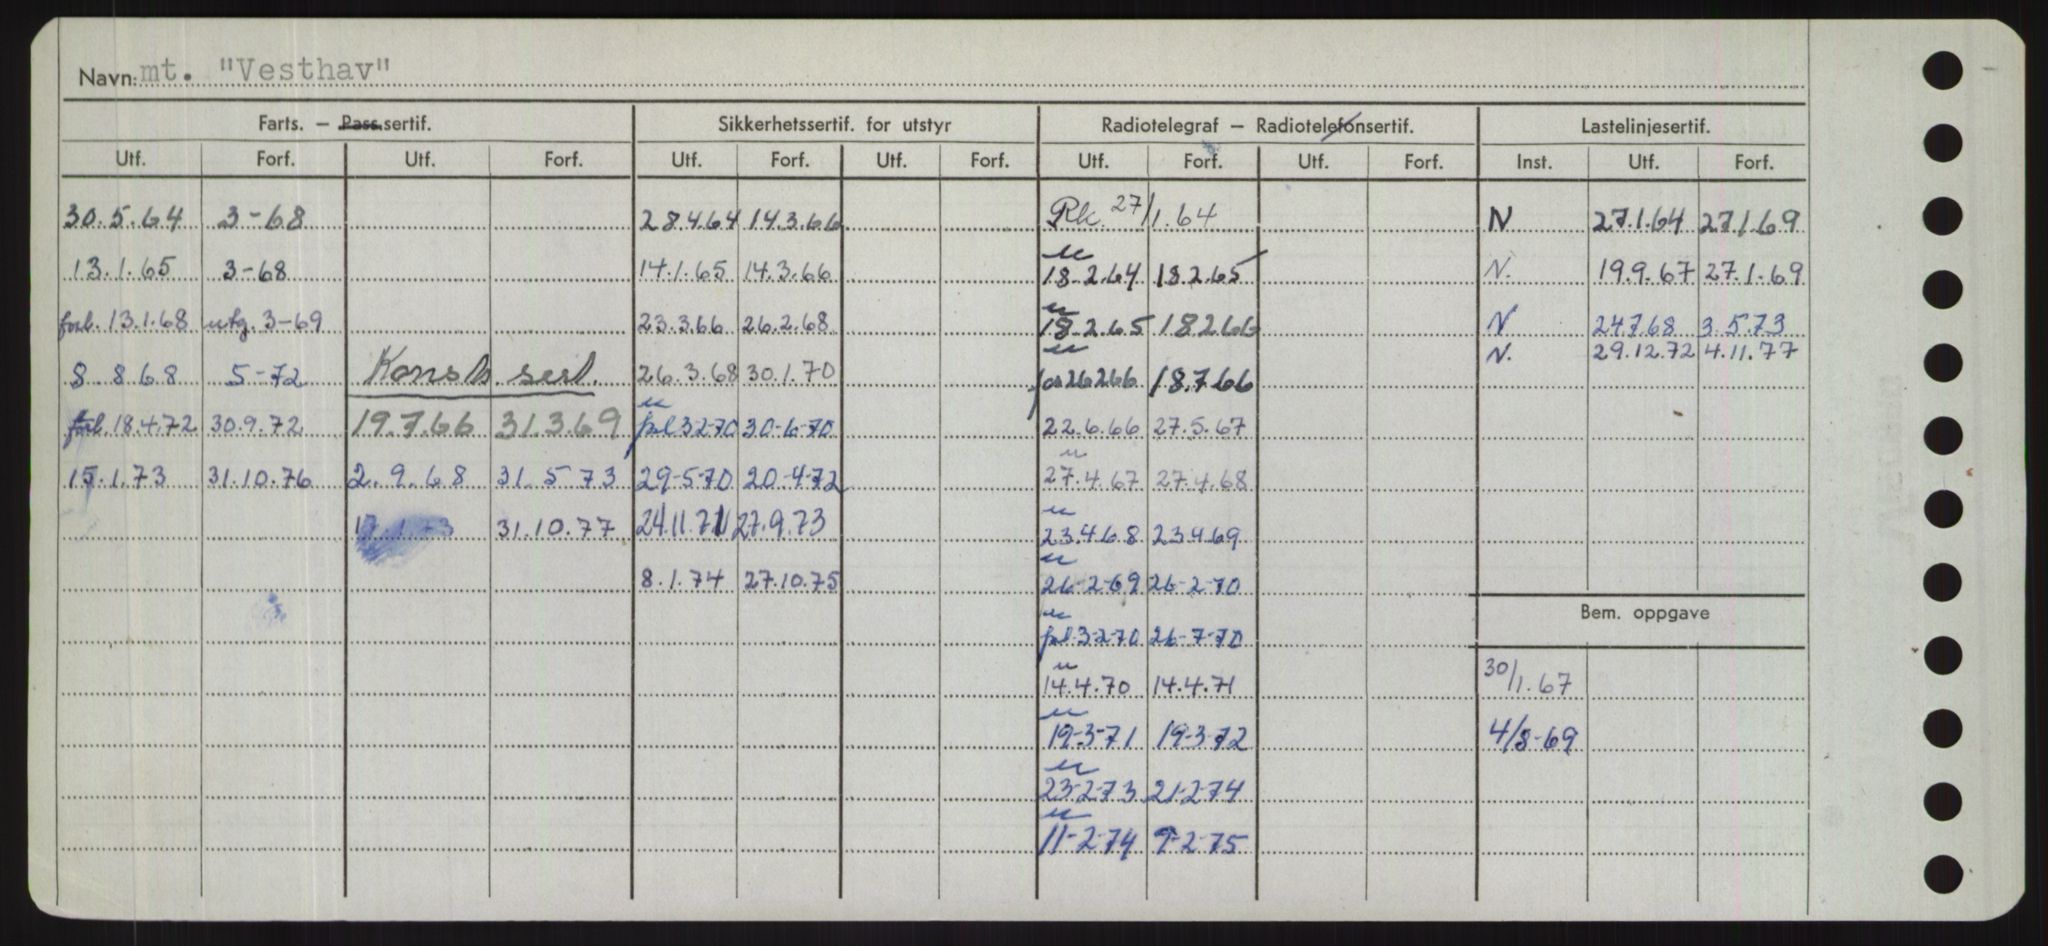 Navn: mt. "Vesthav"
Farts. — Pass.sertif. Sikkerhetssertif. for utstyr Radiotelegraf — Radiotelefonsertif. Lastelinjesertif.
Utf. Forf. Utf. Forf. Utf. Forf. Utf. Forf. Utf. Forf. Utf. Forf. Inst. Utf. Forf.
30.5.64 3-68 28.4.64 14.3.66 Rk. 27/1.64 N 27.1.64 27.1.69
13.1.65 3-68 14.1.65 14.3.66 18.2.64 18.2.65 N. 19.9.67 27.1.69
forl. 13.1.68 utg. 3-69 23.3.66 26.2.68 18.2.65 18266 N 24768 3.5.73
N. 29.12.72 4.11.77
8 8 68 5-72 Konstr. sert. 26.3.68 30.1.70 26266 18.7.66
forl. 18.4.72 30.9.72 19.7.66 31.3.69 forl 3270 30-6-70 22.6.66 27.5.67
15.1.73 31.10.76 2.9.68 31.5 73 29-5-70 20-4-72 27.4.67 27.4.68
17.1.73 31.10.77 24.11.71 27.9.73 23.468 23469
8.1.74 27.10.75 26-2-69 26-2-70
forl 3-2-70 26-7-70
Bem. oppgave
14.4.70 14.4.71 30/1.67
19-3-71 19-3-72 4/8-69
23-2-73 21-2-74
11-2-74 9-2-75